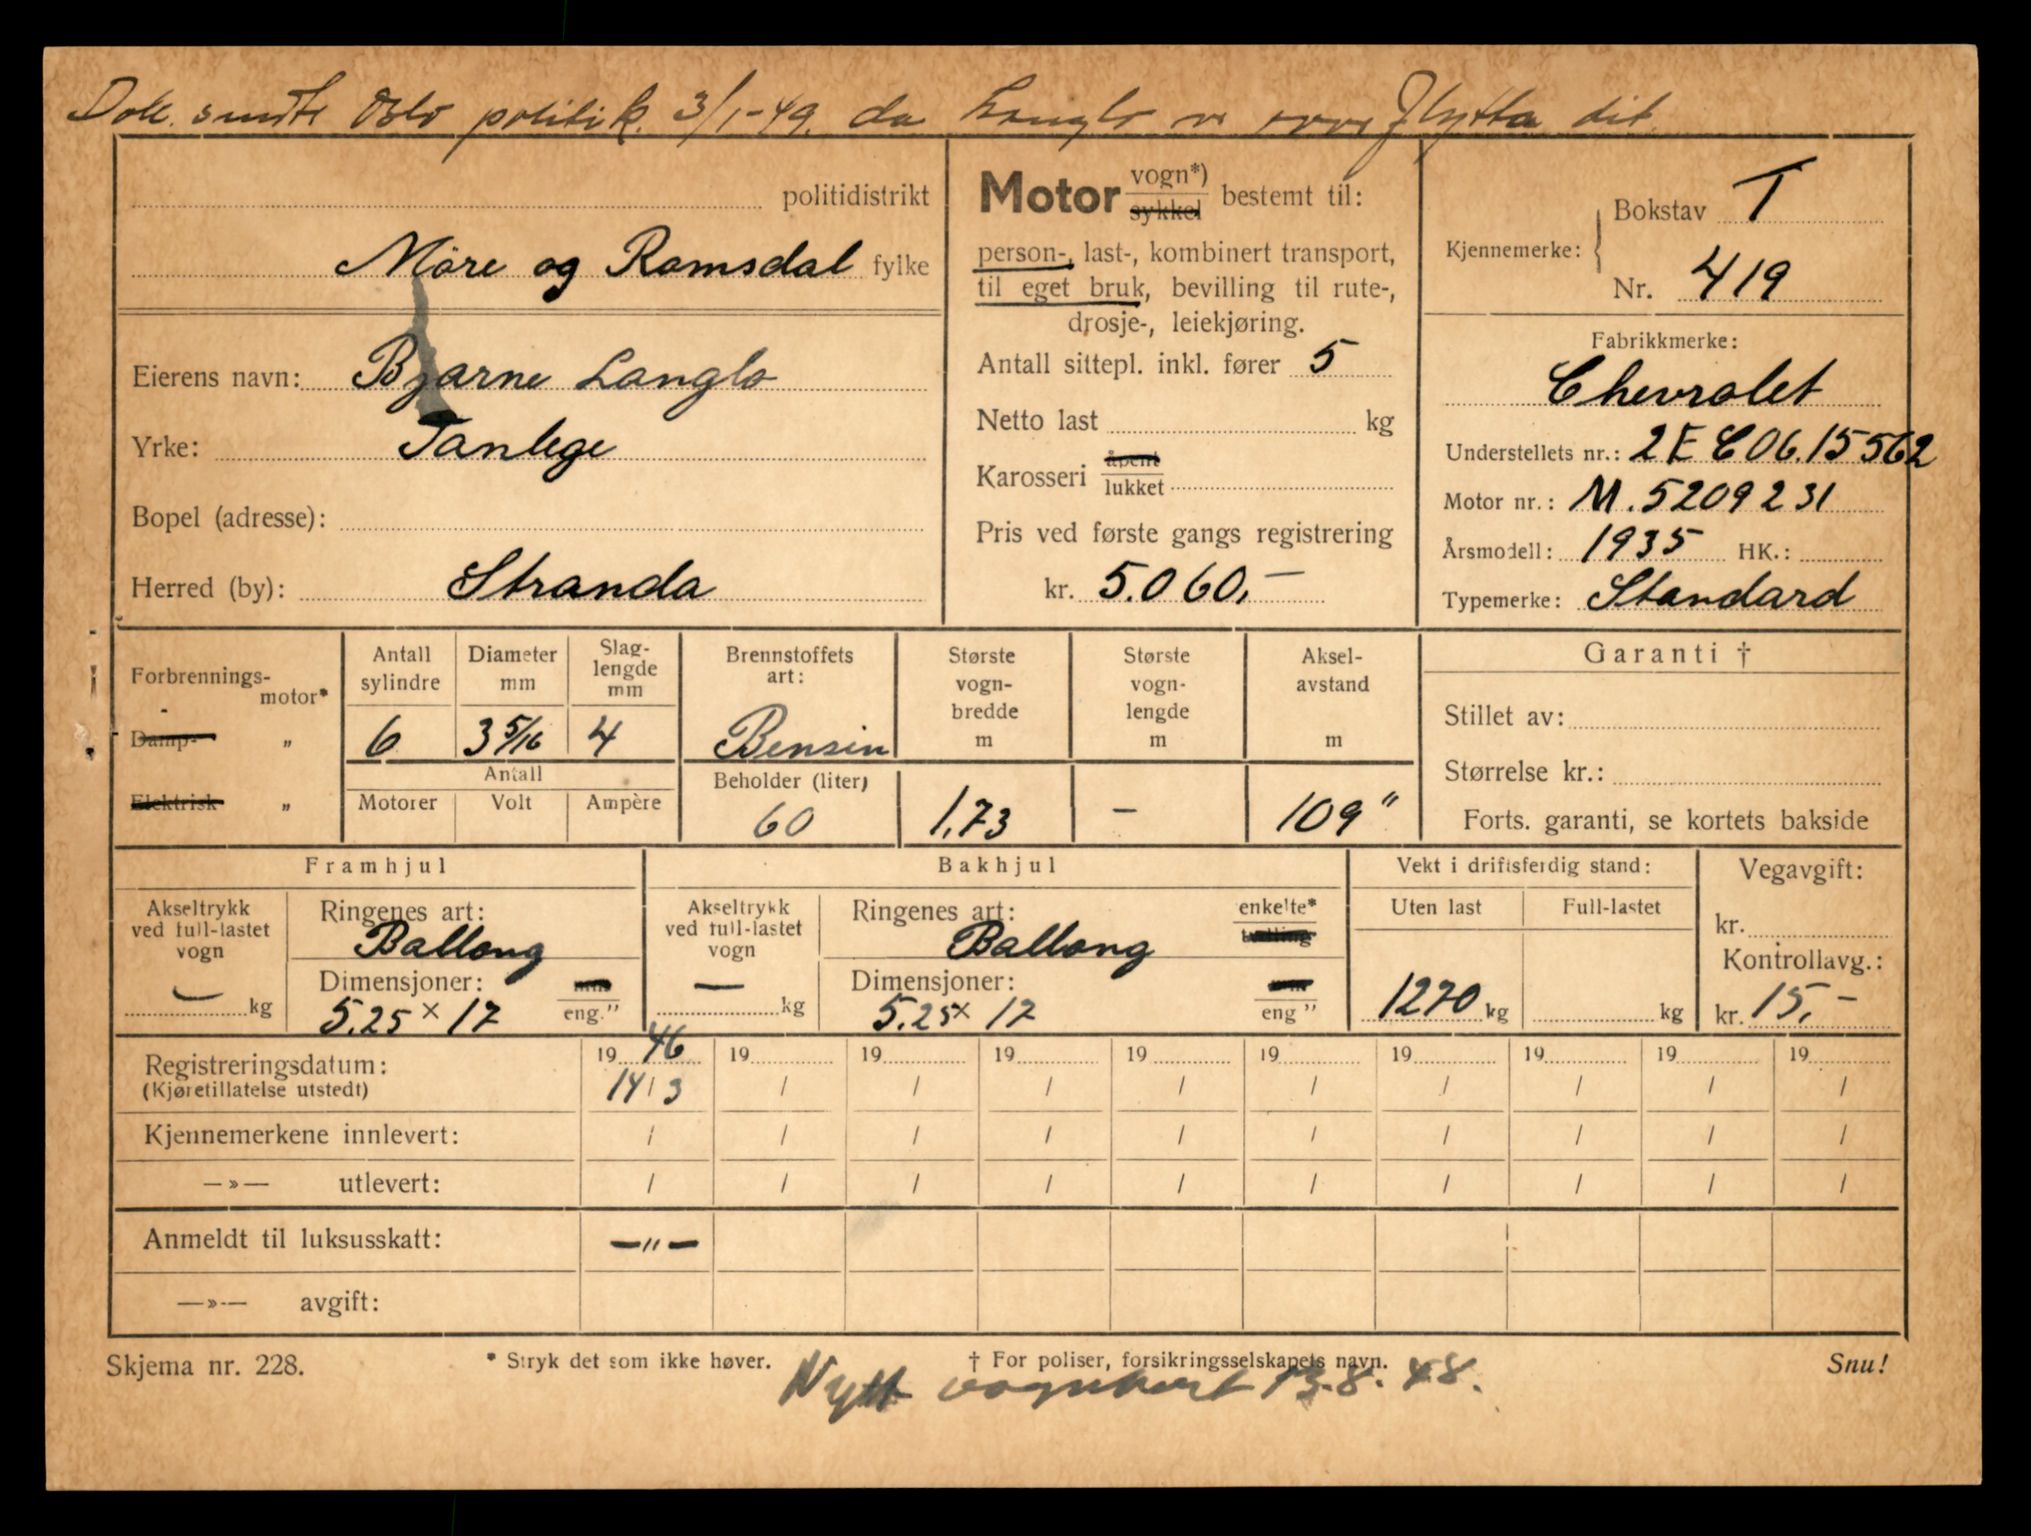 Dok. sendt Oslo politik. 3/1-49. da Langlo flytta dit.
politidistrikt
Möre og Romsdal fylke
Eierens navn: Bjarne Langlo
Yrke: Tanlege
Bopel (adresse):
Herred (by): Stranda
Motor vogn*) sykkel bestemt til:
person-, last-, kombinert transport,
til eget bruk, bevilling til rute-,
drosje-, leiekjøring.
Antall sittepl. inkl. fører 5
Netto last kg
Karosseri åpent lukket
Pris ved første gangs registrering
kr. 5.060,—
Kjennemerke: Bokstav T
Nr. 419
Fabrikkmerke:
Chevrolet
Understellets nr.: 2 E C 06.15562
Motor nr.: M.5209231
Årsmodell: 1935 HK.:
Typemerke: Standard
Forbrennings-
motor*
Damp- „
Elektrisk „
Antall
sylindre
6
Diameter
mm
3 5/16
Slag-
lengde
mm
4
Antall
Motorer Volt Ampère
Brennstoffets
art:
Bensin
Beholder (liter)
60
Største
vogn-
bredde
m
1,73
Største
vogn-
lengde
m
—
Aksel-
avstand
m
109"
Garanti †
Stillet av:
Størrelse kr.:
Forts. garanti, se kortets bakside
Framhjul
Akseltrykk
ved full-lastet
vogn
— kg
Ringenes art:
Ballong
Dimensjoner: mm
5.25 x 17 eng."
Bakhjul
Akseltrykk
ved full-lastet
vogn
— kg
Ringenes art: enkelte*
Ballong tvilling
Dimensjoner:
5.25 x 17 eng "
Vekt i driftsferdig stand:
Uten last Full-lastet
1270 kg kg
Vegavgift:
kr.
Kontrollavg.:
kr. 15,—
Registreringsdatum: 19 46 19 19 19 19 19 19 19 19 19
(Kjøretillatelse utstedt) 14/3 / / / / / / / / /
Kjennemerkene innlevert: / / / / / / / / / /
—»— utlevert: / / / / / / / / / /
Anmeldt til luksusskatt: —"—
—»— avgift:
Skjema nr. 228. * Stryk det som ikke høver. † For poliser, forsikringsselskapets navn. Snu!
Nytt vognkort 13.8.48.